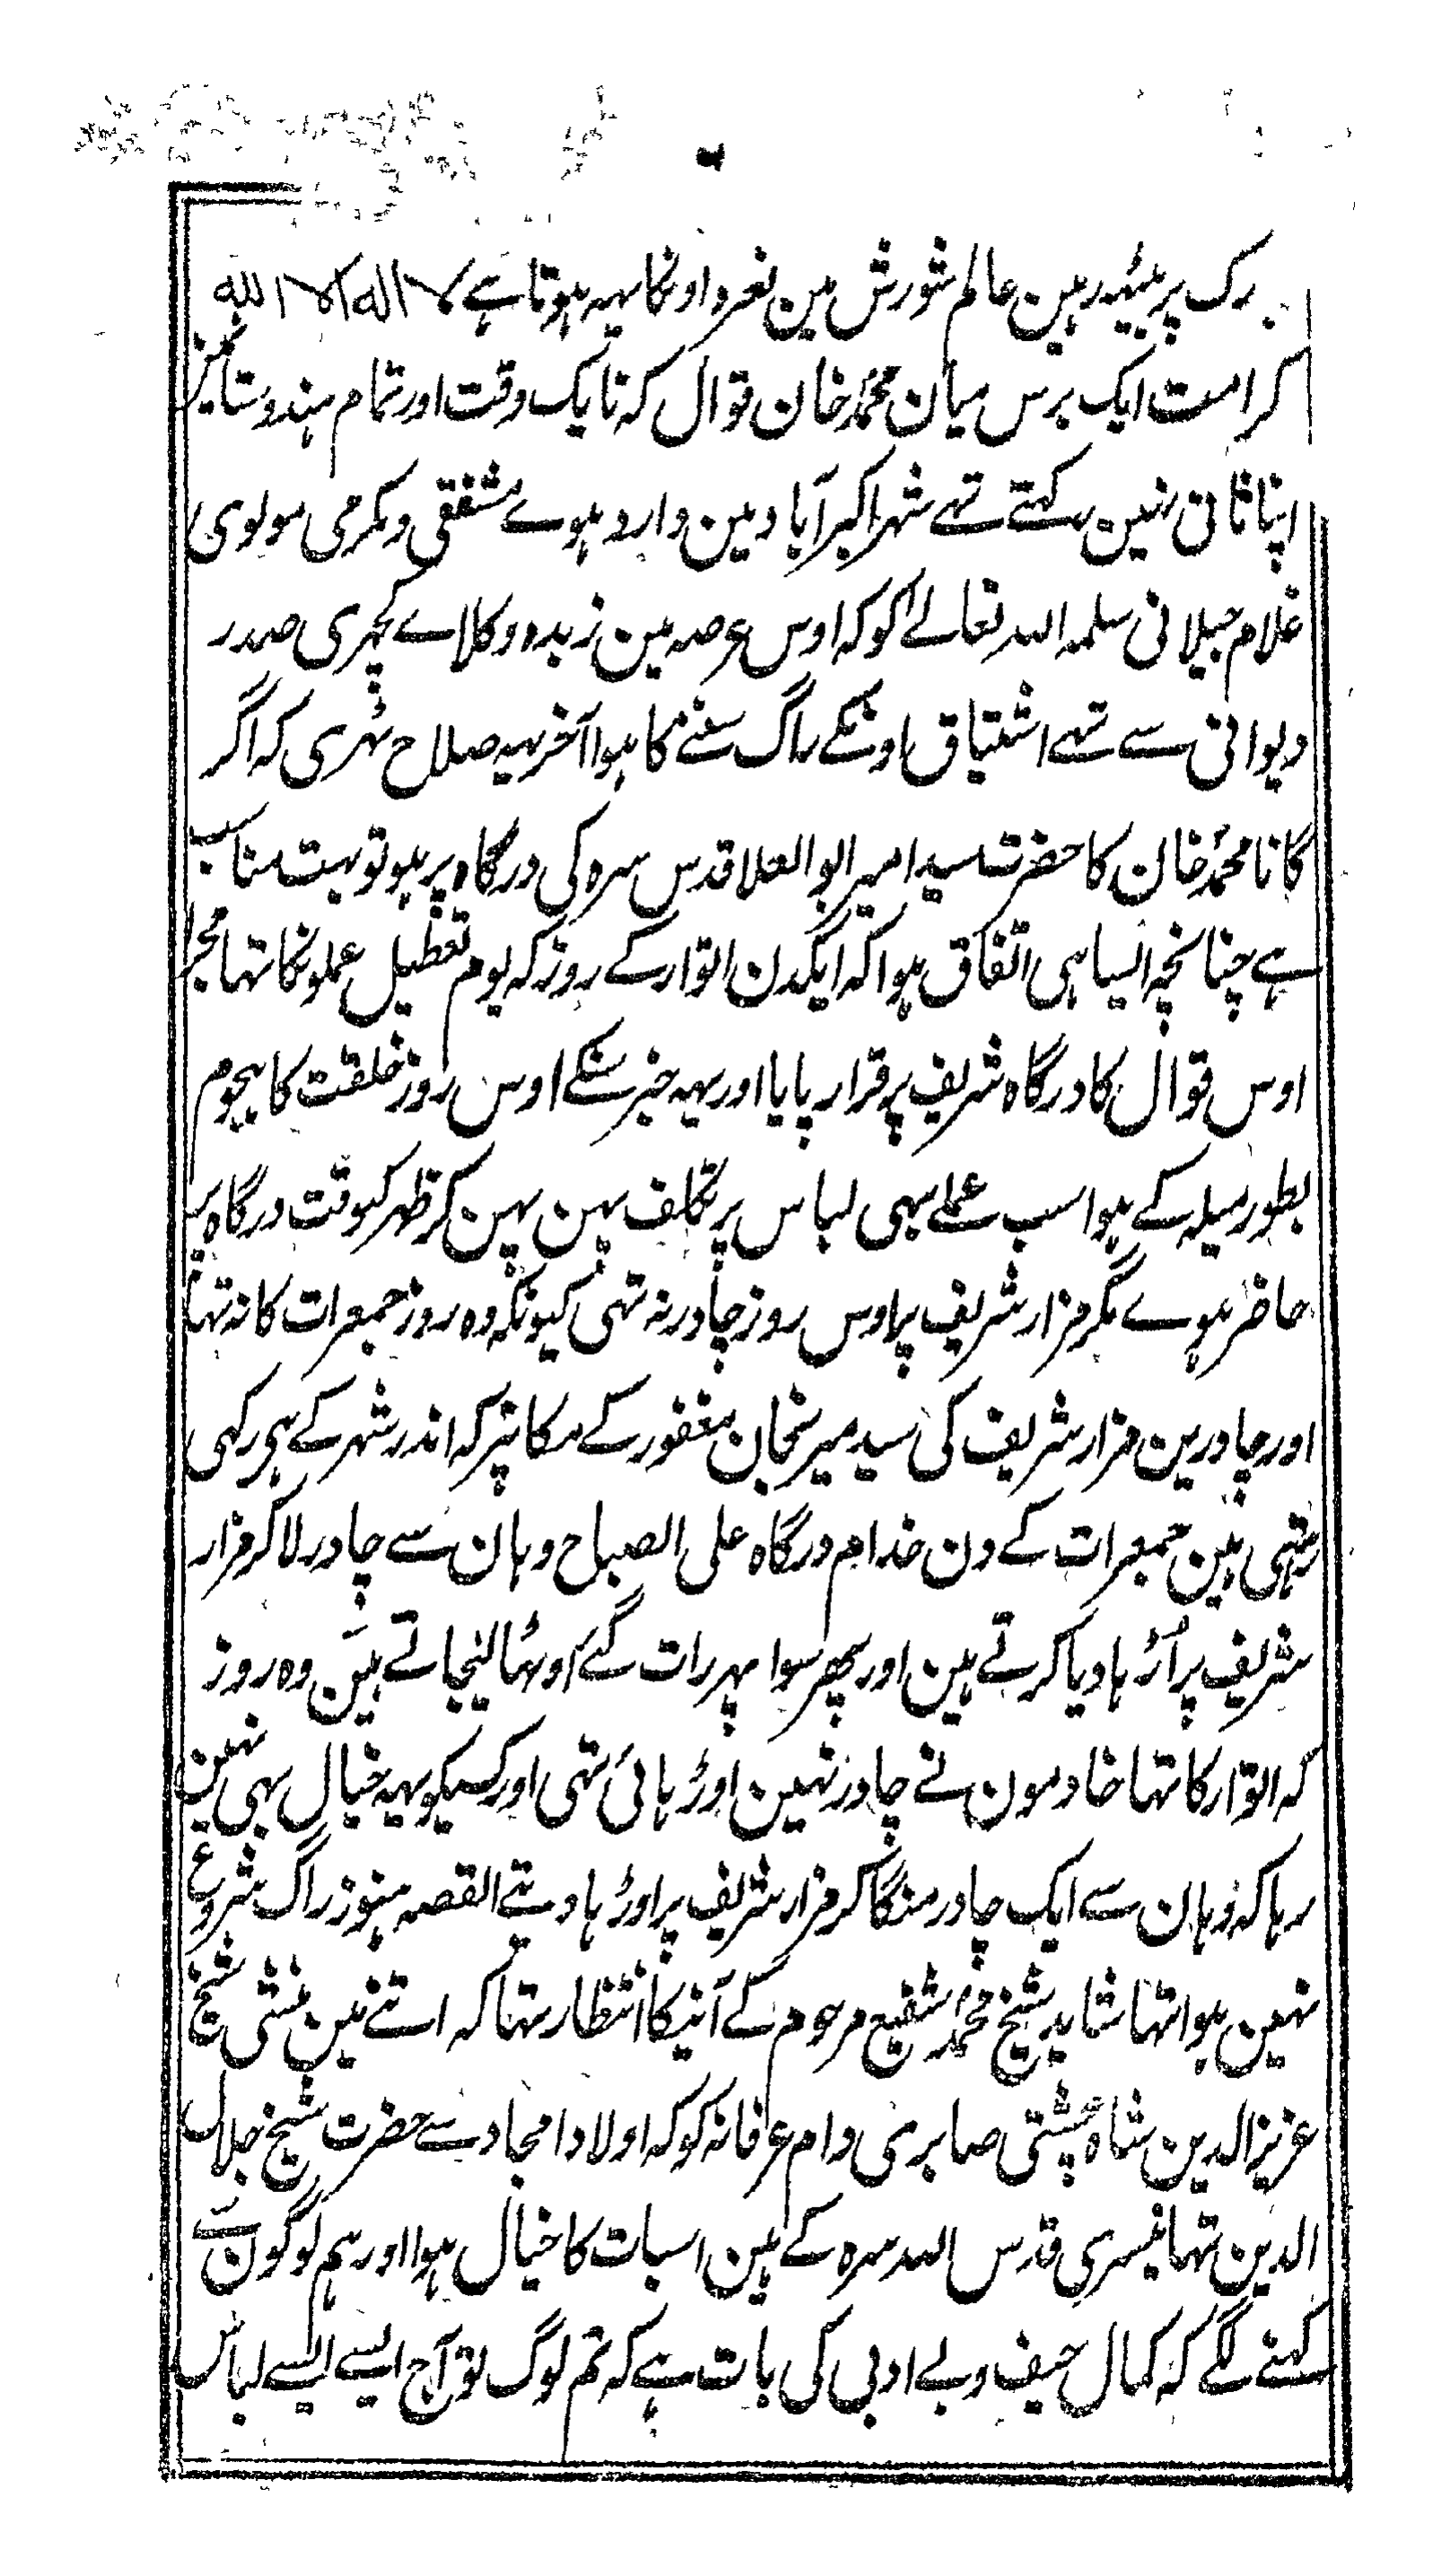 پر بیٹھہ رہین عالم شورش مین نعرہ اونکا یہہ ہوتا ہے لا الہ الا اللہ
کرامت ایک برس میان محمدؐ خان قوال کہ نایک وقت اور تمام ہندوستانمین
اپنا ثانی نہین رکہتے تہے شہر اکبرآباد مین وارد ہوے مشفقی و مکرمی مولوی
غلام جیلانی سلمہ اللہ تعالے کو کہ اوس عرصہ مین زبدہ وکلاے کچہری صدر
دیوانی سے تہے اشتیاق اونکے راگ سننے کا ہوا آخر یہہ صلاح ٹہری کہ اگر
گانا محمدؐ خان کا حضرت سید امیر ابو العلا قدس سرہ کی درگاہ پر ہو تو بہت مناسب
ہے چنانچہ ایسا ہی اتفاق ہوا کہ ایکدن اتوار کے روز کہ یوم تعطیل عملونکا تہا مجرا
اوس قوال کا درگاہ شریف پر قرار پایا اور یہہ خبر سنکے اوس روز خلقت کا ہجوم
بطور میلہ کے ہوا سب عملے بہی لباس پر تکلف پہن پہن کر ظہر کیوقت درگاہ پر
حاضر ہوے مگر مزار شریف پر اوس روز چادر نہ تہی کیونکہ وہ روز جمعرات کا نہ تہا
اور چادرین مزار شریف کی سید میر نجان مغفور کے مکانپر کہ اندر شہر کے ہی رکہی
رہتہی ہین جمعرات کے دن خدام درگاہ علی الصباح وہان سے چادر لا کر مزار
شریف پر اُڑہا دیا کرتے ہین اور پھر سوا پہر رات گئے اوٹہا لیجاتے ہین وہ روز
کہ اتوار کا تہا خادمون نے چادر نہین اوڑہائی تہی اور کسیکو یہہ خیال بہی نہین
رہا کہ وہان سے ایک چادر منگا کر مزار شریف پر اوڑہا دیتے القصہ ہنوز راگ شروع
نہین ہوا تہا شاید شیخ محمدؐ شفیع مرحوم کے آنیکا انتظار تہا کہ اتنے مین منشی شیخ
عزیز الدین شاہ چشتی صابری دام عرفانہ کو کہ اولاد امجاد سے حضرت شیخ جلال
الدین تہانیسری قدس اللہ سرہ کے ہین اسبات کا خیال ہوا اور ہم لوگون سے
کہنے لگے کہ کمال حیف و بے ادبی کی بات ہے کہ تم لوگ تو آج ایسے ایسے لباس